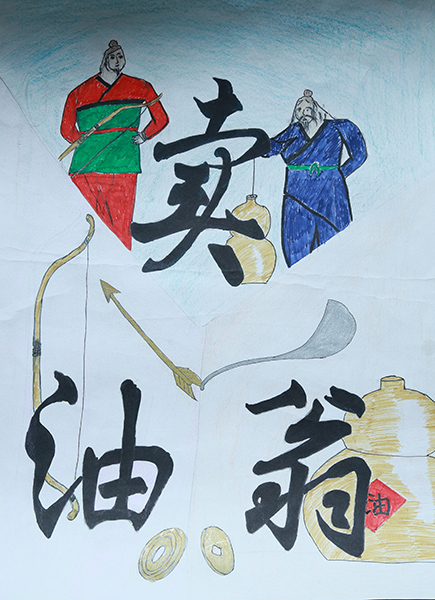 卖
油翁
油